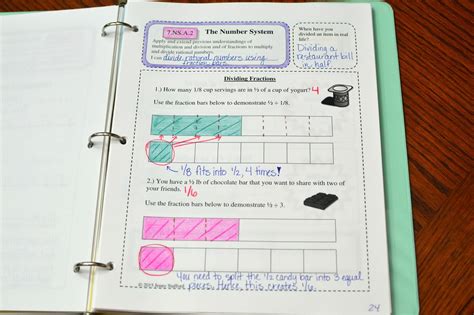 7.NS.A.2
The Number System
Apply and extend previous understandings of
multiplication and division and of fractions to multiply
and divide rational numbers.
I can divide rational numbers using
fraction bars
When have you
divided an item in real
life?
Dividing a
restaurant bill
in half.
Dividing Fractions
1.) How many 1/8 cup servings are in ½ of a cup of yogurt? 4
Use the fraction bars below to demonstrate ½ ÷ 1/8.
1/8 fits into 1/2, 4 times!
2.) You have a ½ lb of chocolate bar that you want to share with two of
your friends. 1/6
Use the fraction bars below to demonstrate ½ ÷ 3.
You need to split the 1/2 candy bar into 3 equal
pieces. Hence, this creates 1/6.
24